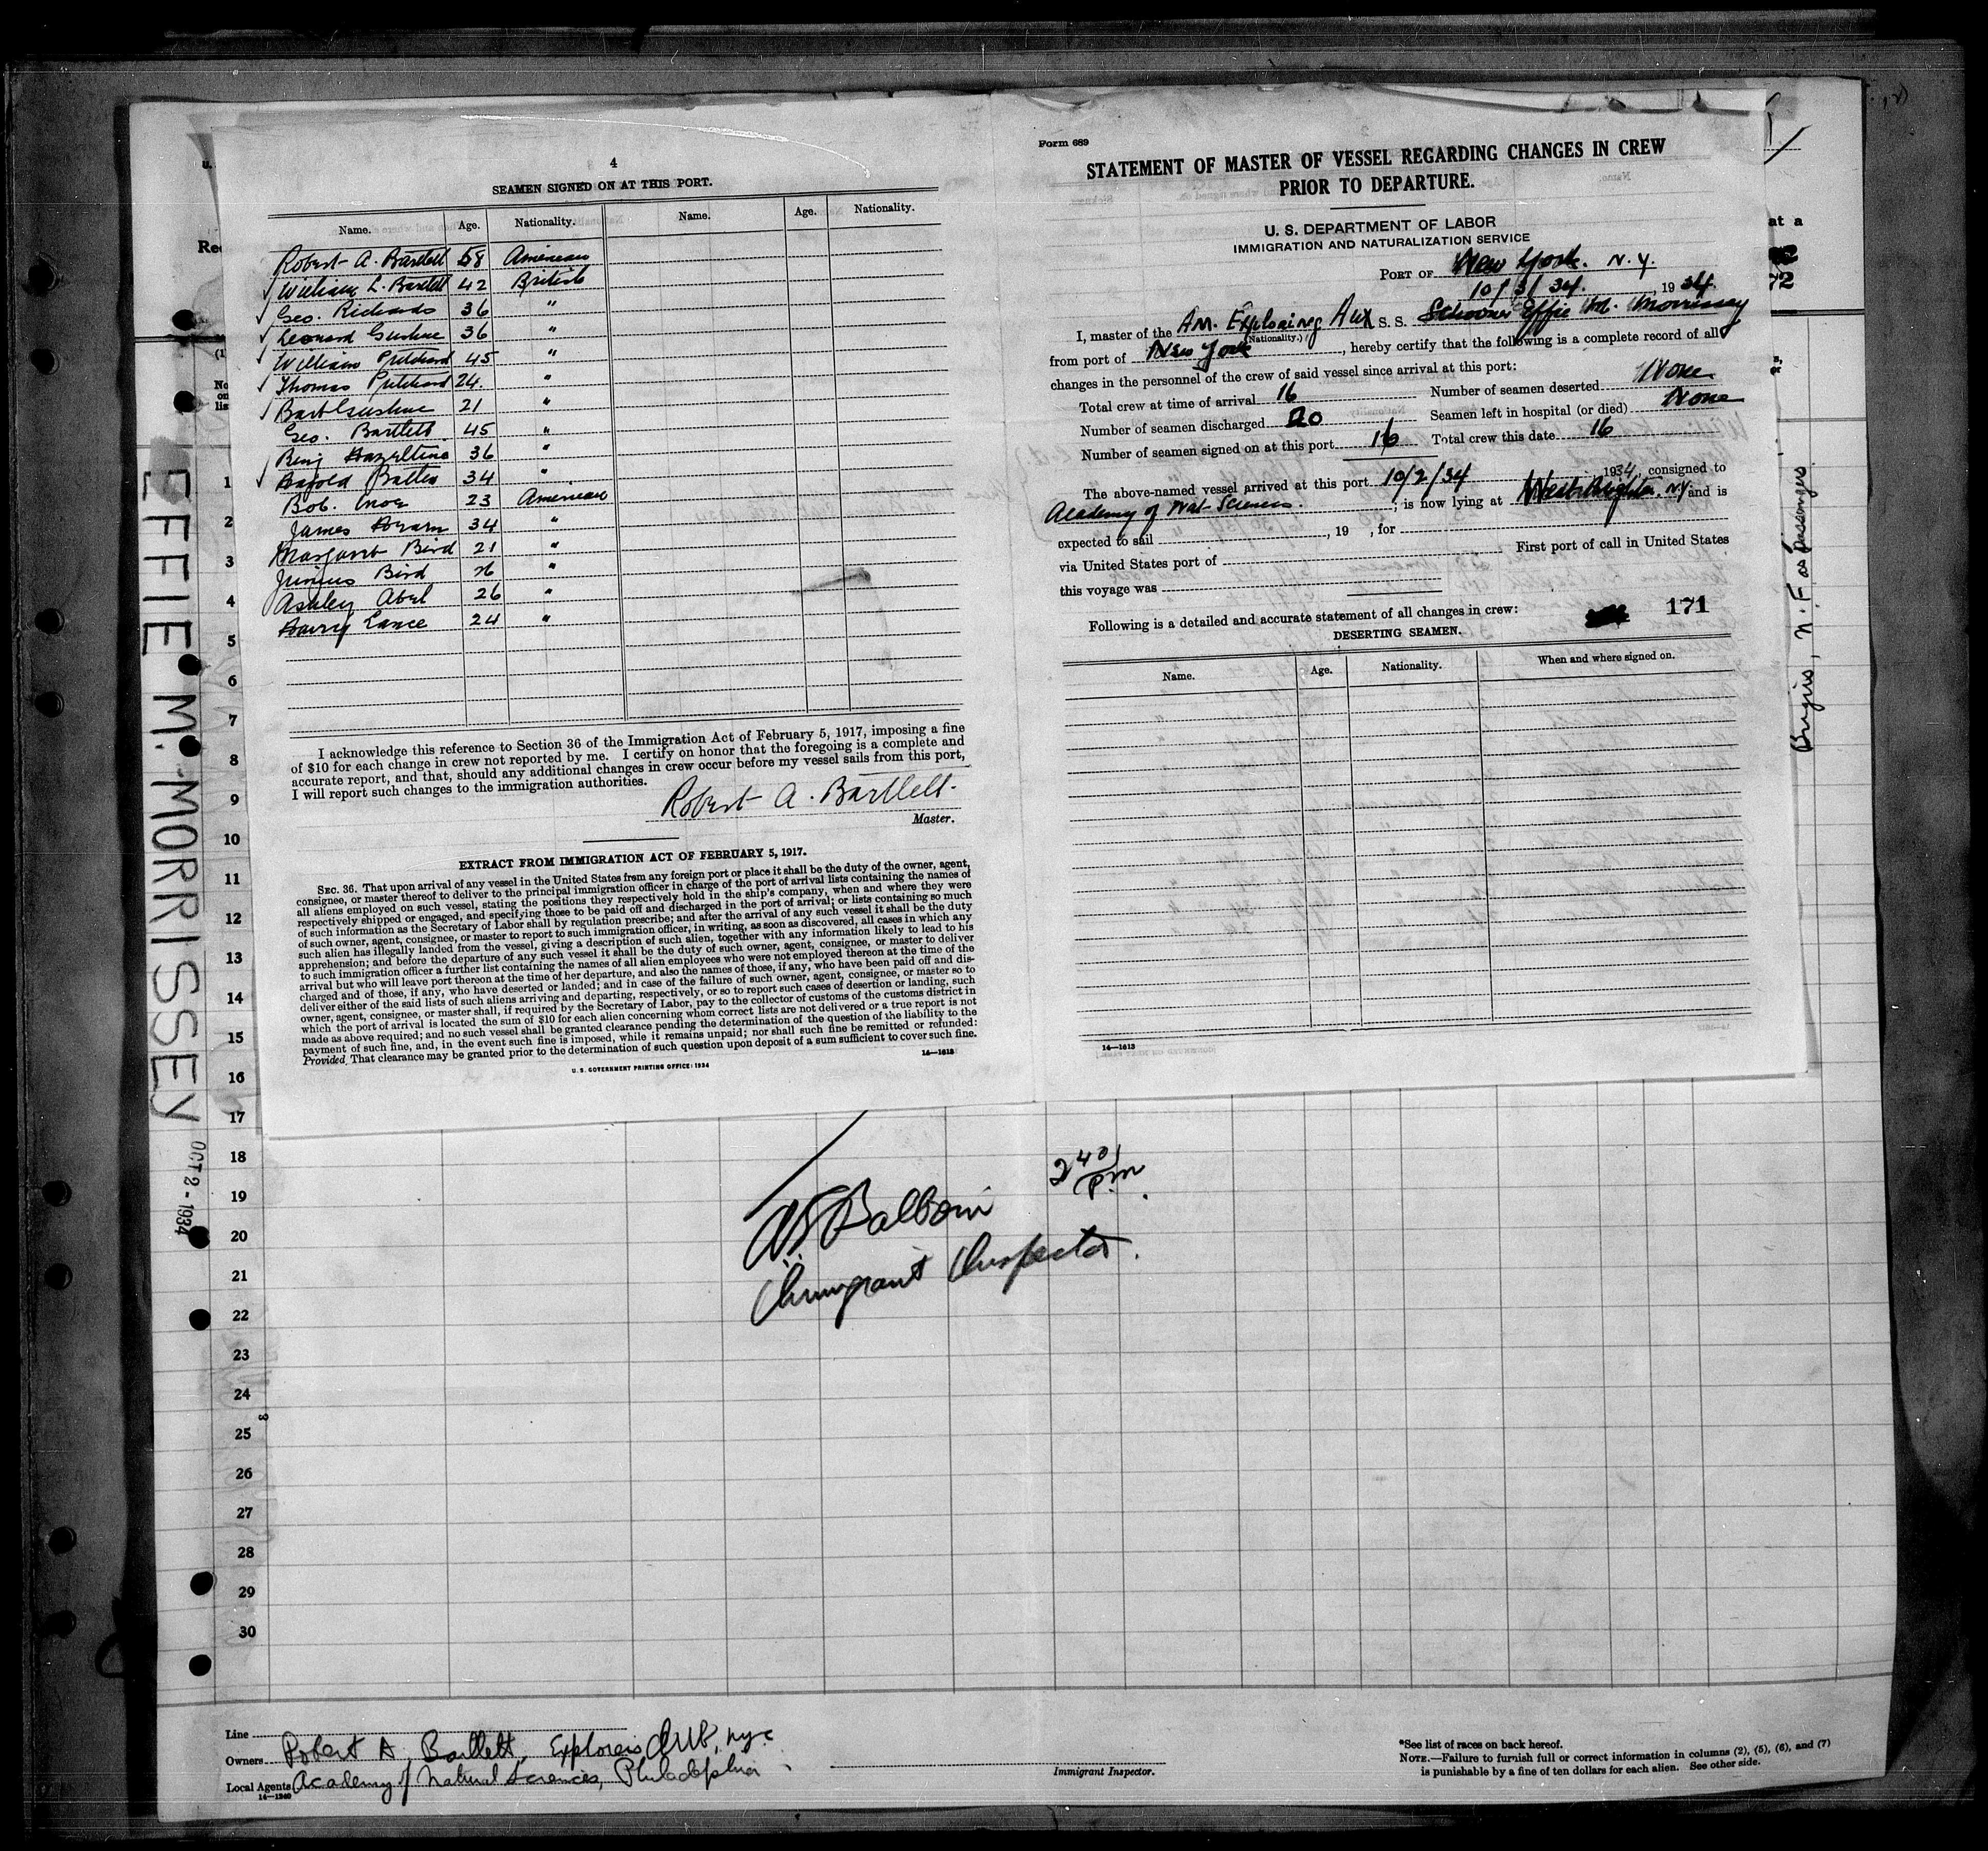 4
SEAMEN SIGNED ON AT THIS PORT.
Name. Age. Nationality. Name. Age. Nationality.
Robert A. Bartlett 58 American
✓ William L. Bartlett 42 British
✓ Geo. Richards 36 "
✓ Leonard Gushue 36 "
✓ William Pritchard 45 "
✓ Thomas Pritchard 24. "
✓ Bart Gushue 21 "
Geo. Bartlett 45 "
Benj Hazeltine 36 "
✓ Harold Batten 34 "
Bob. 23 American
James 34 "
Margaret Bird 21 "
Junius Bird 26 "
Ashley Abel 26 "
Harry Lance 24 "
I acknowledge this reference to Section 36 of the Immigration Act of February 5, 1917, imposing a fine
of $10 for each change in crew not reported by me. I certify on honor that the foregoing is a complete and
accurate report, and that, should any additional changes in crew occur before my vessel sails from this port,
I will report such changes to the immigration authorities.
Robert A. Bartlett.
Master.
EXTRACT FROM IMMIGRATION ACT OF FEBRUARY 5, 1917.
SEC. 36. That upon arrival of any vessel in the United States from any foreign port or place it shall be the duty of the owner, agent,
consignee, or master thereof to deliver to the principal immigration officer in charge of the port of arrival lists containing the names of
all aliens employed on such vessel, stating the positions they respectively hold in the ship's company, when and where they were
respectively shipped or engaged, and specifying those to be paid off and discharged in the port of arrival; or lists containing so much
of such information as the Secretary of Labor shall by regulation prescribe; and after the arrival of any such vessel it shall be the duty
of such owner, agent, consignee, or master to report to such immigration officer, in writing, as soon as discovered, all cases in which any
such alien has illegally landed from the vessel, giving a description of such alien, together with any information likely to lead to his
apprehension; and before the departure of any such vessel it shall be the duty of such owner, agent, consignee, or master to deliver
to such immigration officer a further list containing the names of all alien employees who were not employed thereon at the time of the
arrival but who will leave port thereon at the time of her departure, and also the names of those, if any, who have been paid off and dis-
charged and of those, if any, who have deserted or landed; and in case of the failure of such owner, agent, consignee, or master so to
deliver either of the said lists of such aliens arriving and departing, respectively, or so to report such cases of desertion or landing, such
owner, agent, consignee, or master shall, if required by the Secretary of Labor, pay to the collector of customs of the customs district in
which the port of arrival is located the sum of $10 for each alien concerning whom correct lists are not delivered or a true report is not
made as above required; and no such vessel shall be granted clearance pending the determination of the question of the liability to the
payment of such fine, and, in the event such fine is imposed, while it remains unpaid; nor shall such fine be remitted or refunded:
Provided, That clearance may be granted prior to the determination of such question upon deposit of a sum sufficient to cover such fine.
14—1613
U. S. GOVERNMENT PRINTING OFFICE: 1934
Form 689
STATEMENT OF MASTER OF VESSEL REGARDING CHANGES IN CREW
PRIOR TO DEPARTURE.
U. S. DEPARTMENT OF LABOR
IMMIGRATION AND NATURALIZATION SERVICE
PORT OF New York. N.Y.
10/3/34. , 1934.
I, master of the Am. Exploring Aux S. S. Schooner Effie M. Morrissey
(Nationality.)
from port of New York , hereby certify that the following is a complete record of all
changes in the personnel of the crew of said vessel since arrival at this port:
Total crew at time of arrival 16 Number of seamen deserted None
Number of seamen discharged Seamen left in hospital (or died) None
Number of seamen signed on at this port 16 Total crew this date 16
The above-named vessel arrived at this port 10/2/34 1934, consigned to
Academy of Nat Sciences. ; is now lying at West Brighton, N.Y. and is
expected to sail , 19 , for
via United States port of First port of call in United States
this voyage was
Following is a detailed and accurate statement of all changes in crew: 171
DESERTING SEAMEN.
Name. Age. Nationality. When and where signed on.
14—1613
EFFIE M. MORRISSEY OCT 2 - 1934
at a
72
Brigus, N.F. as passengers
1
2
3
4
5
6
7
8
9
10
11
12
13
14
15
16
17
18
19
20
21
22
23
24
25
26
27
28
29
30
3
2 40 Pm.
Immigrant Inspector.
Line
Owners Robert A. Bartlett, Explorers Club, NYC
Local Agents Academy of Natural Sciences, Philadelphia
14—1240
Immigrant Inspector.
*See list of races on back hereof.
NOTE.—Failure to furnish full or correct information in columns (2), (5), (6), and (7)
is punishable by a fine of ten dollars for each alien. See other side.